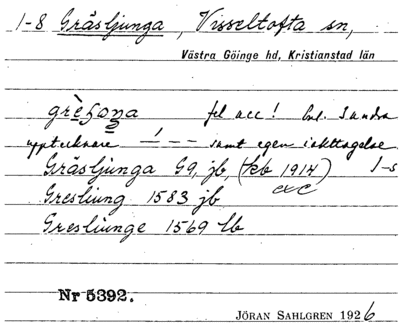 1-8 Gräsljunga, Visseltofta sn,
Västra Göinge hd, Kristianstad län
grèʃoṇa fel acc! enl. andra
upptecknare –́ – – samt egen iakttagelse
Gräsljunga G9, jb, (kb 1914) 1-8
exc
Gresliung 1583 jb
Gresliunge 1569 lb
Nr 5392.
JÖRAN SAHLGREN 1926